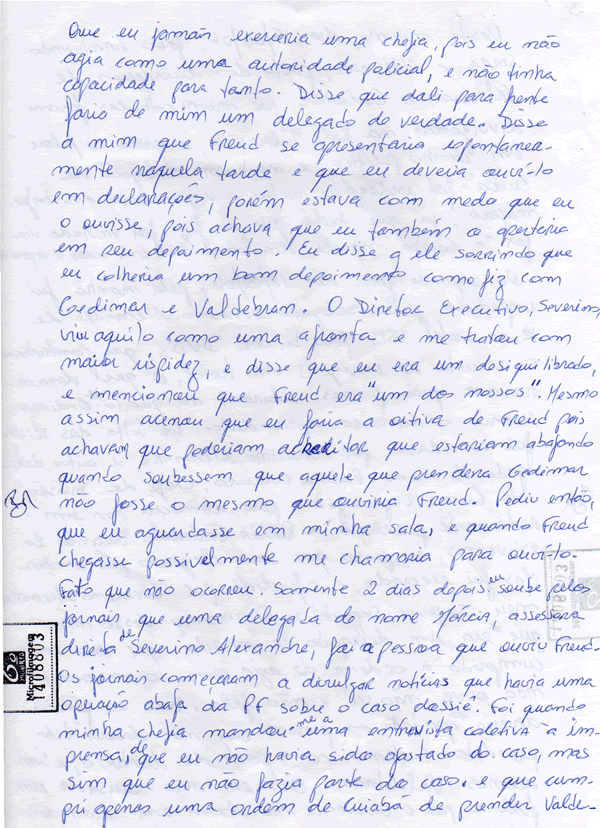 Que eu jamais exerceria uma chefia, pois eu não
agia como uma autoridade policial, e não tinha
capacidade para tanto. Disse que dali para frente
faria de mim um delegado de verdade. Disse
a mim que Freud se apresentaria espontanea-
mente naquela tarde e que eu deveria ouví-lo
em declarações, porém estava com medo que eu
o ouvisse, pois achava que eu também o apertaria
em seu depoimento. Eu disse a ele sorrindo que
eu colheria um bom depoimento como fiz com
Gedimar e Valdebran. O Diretor Executivo, Severino,
viu aquilo como uma afronta e me tratou com
maior rispidez, e disse que eu era um desiquilibrado,
e mencionou que Freud era "um dos nossos". Mesmo
assim acenou que eu faria a oitiva de Freud pois
achavam que poderiam acreditar que estariam abafando
quando soubessem que aquele que prendera Gedimar
não fosse o mesmo que ouviria Freud. Pediu então,
que eu aguardasse em minha sala, e quando Freud
chegasse possivelmente me chamaria para ouví-lo.
Fato que não ocorreu. Somente 2 dias depois eu soube pelos
jornais que uma delegada de nome Márcia, assessora
direta de Severino Alexandre, foi a pessoa que ouviu Freud.
Os jornais começaram a divulgar notícias que havia uma
operação abafa da PF sobre o caso dossiê. Foi quando
minha chefia mandou-me a uma entrevista coletiva à im-
prensa, de que eu não havia sido afastado do caso, mas
sim que eu não fazia parte do caso. e que cum-
pri apenas uma ordem de Cuiabá de prender Valde-
Microfilmagem
1408803